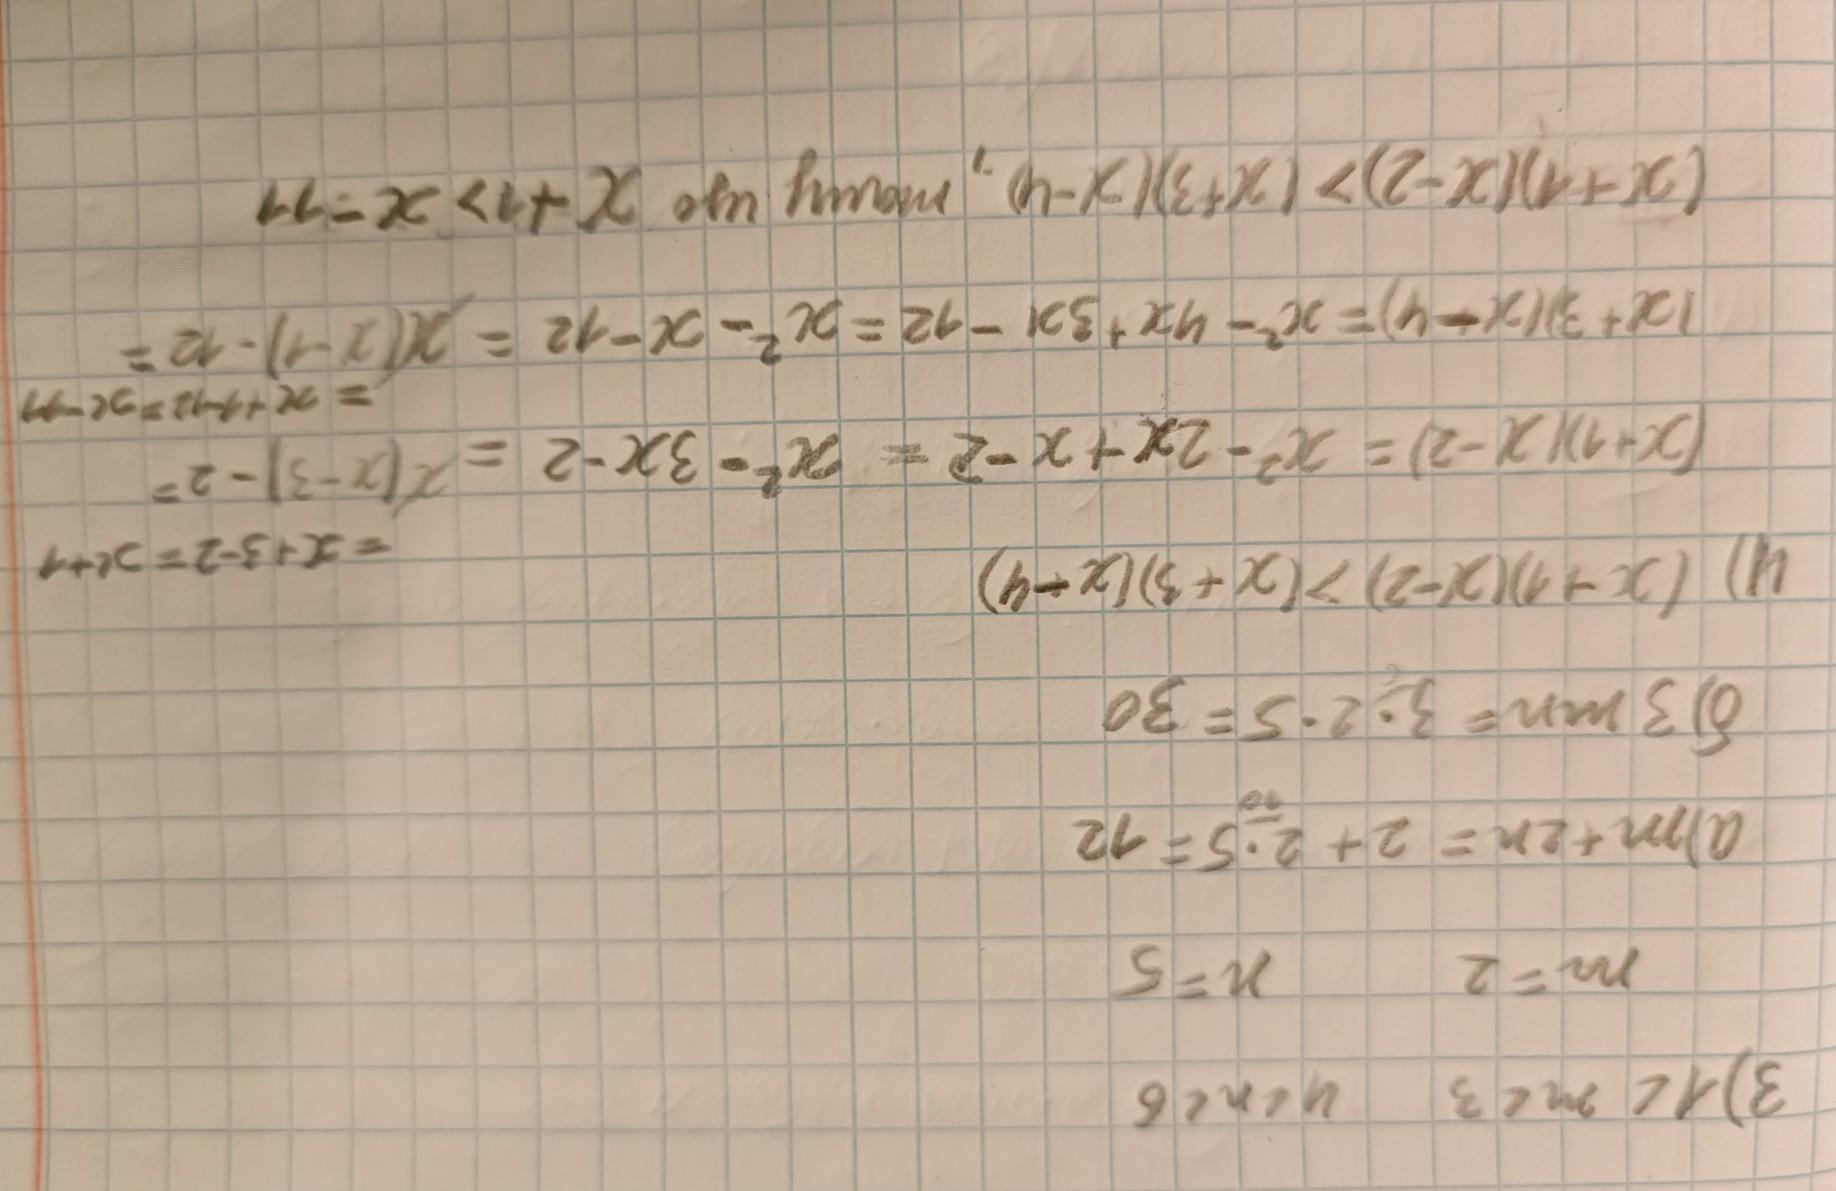 3) 1 < m < 3 4 < n < 6
m = 2 n = 5
а) m + 2n = 2 + 2·5 = 12
10
б) 3mn = 3·2·5 = 30
6
4) (x+1)(x-2) > (x+3)(x-4)
(x+1)(x-2) = x² - 2x + x - 2 = x² - 3x - 2 = x(x-3) - 2 =
= x+3-2 = x+1
(x+3)(x-4) = x² - 4x + 3x - 12 = x² - x - 12 = x(x-1) - 12 =
= x+1-12 = x-11
(x+1)(x-2) > (x+3)(x-4), тому що x+1 > x-11